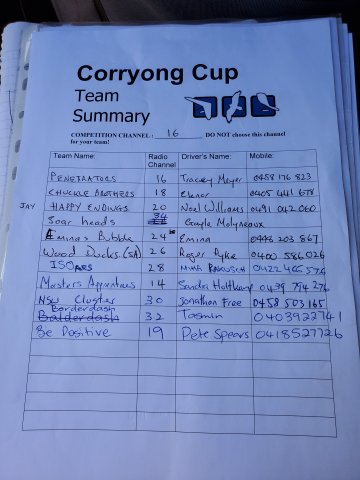 Corryong Cup
Team
Summary
COMPETITION CHANNEL : 16 DO NOT choose this channel
for your team!
Team Name: Radio Channel Driver's Name: Mobile:
PENETRATORS 16 Tracey Meyer 0458 176 823
CHUCKLE BROTHERS 18 Eleanor 0405 441 678
JAY HAPPY ENDINGS 20 Noel Williams 0491 042 060
Soar heads 34 Gayle Molyneaux
Emina's Bubble 24 Emina 0448 203 867
Wood Ducks (SA) 26 Roger Pyke 0400 586 026
ISOBARS 28 0422 405 576
Masters Apprentices 14 Sandra 0439 794 276
NSW Cluster 30 Jonathon Free 0458 503 165
Borderdash
Balderdash 32 Tasmin 0403922741
Be Positive 19 Pete Spears 0418527726